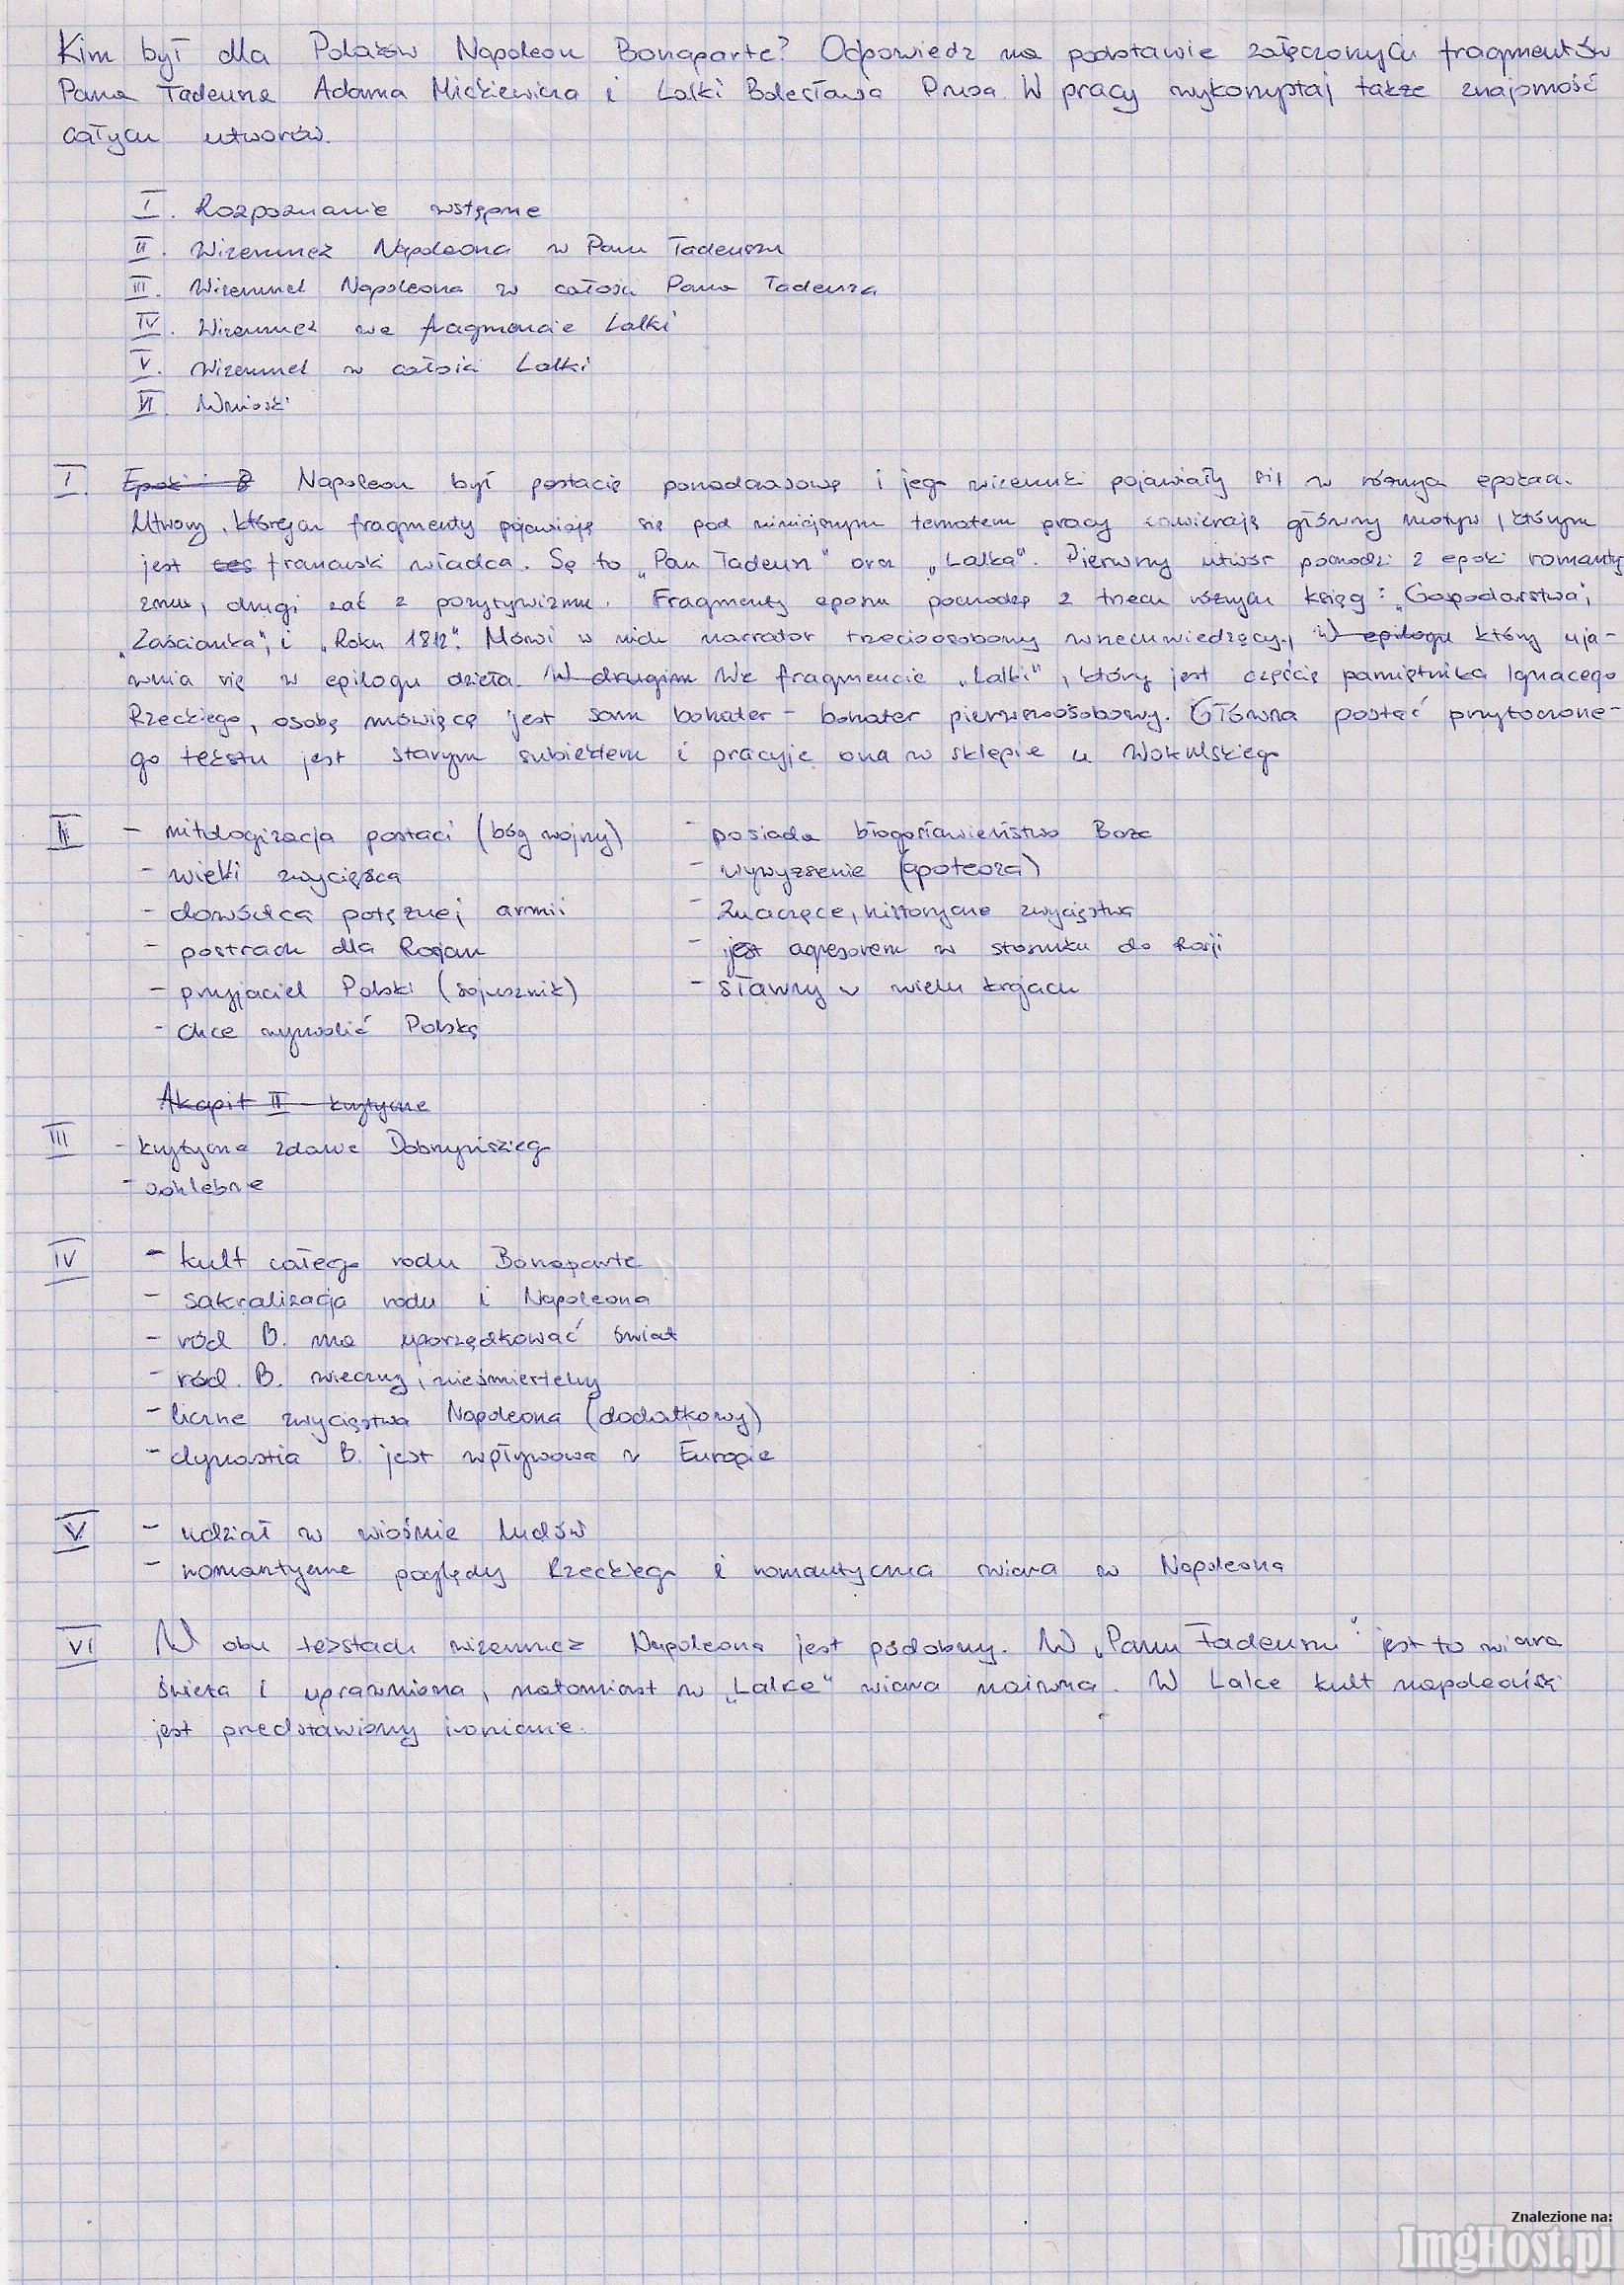 Kim był dla Polaków Napoleon Bonaparte? Odpowiedz na podstawie załączonych fragmentów
Pana Tadeusza Adama Mickiewicza i Lalki Bolesława Prusa. W pracy wykorzystaj także znajomość
całych utworów.
I. Rozpoznanie wstępne
II. Wizerunek Napoleona w Panu Tadeuszu
III. Wizerunek Napoleona w całości Pana Tadeusza
IV. Wizerunek we fragmencie Lalki
V. Wizerunek w całości Lalki
VI. Wnioski
I. Epoki i B Napoleon był postacią ponadczasową i jego wizerunki pojawiały się w różnych epokach.
Utwory, których fragmenty pojawiają się pod niniejszym tematem pracy zawierają główny motyw, którym
jest ces francuski władca. Są to „Pan Tadeusz" oraz „Lalka". Pierwszy utwór pochodzi z epoki romanty
zmu, drugi zaś z pozytywizmu. Fragmenty eposu pochodzą z trzech różnych ksiąg: „Gospodarstwa",
„Zaścianka", i „Roku 1812". Mówi w nich narrator trzecioosobowy wszechwiedzący, W epilogu który uja-
wnia się w epilogu dzieła. W drugim We fragmencie „Lalki", który jest częścią pamiętnika Ignacego
Rzeckiego, osobą mówiącą jest sam bohater - bohater pierwszoosobowy. Główna postać przytoczone-
go tekstu jest starym subiektem i pracuje ona w sklepie u Wokulskiego
II - mitologizacja postaci (bóg wojny) - posiada błogosławieństwo Boże
- wielki zwycięsca - wywyższenie (apoteoza)
- dowódca potężnej armii - Znaczące, historyczne zwycięstwa
- postrach dla Rosjan - jest agresorem w stosunku do Rosji
- przyjaciel Polski (sojusznik) - sławny w wielu krajach
- chce wyzwolić Polskę
Akapit II - krytyczne
III - krytyczne zdanie Dobrzyńskiego
- pochlebne
IV - kult całego rodu Bonaparte
- sakralizacja rodu i Napoleona
- ród B. ma uporządkować świat
- ród. B. wieczny, nieśmiertelny
- liczne zwycięstwa Napoleona (dodatkowy)
- dynastia B. jest wpływowa w Europie
V. - udział w wiośnie ludów
- romantyczne poglądy Rzeckiego i romantyczna wiara w Napoleona
VI W obu tekstach wizerunek Napoleona jest podobny. W „Panu Tadeuszu" jest to wiara
święta i uprawniona, natomiast w „Lalce" wiara naiwna. W Lalce kult napoleoński
jest przedstawiony ironicznie.
Znalezione na:
ImgHost.pl